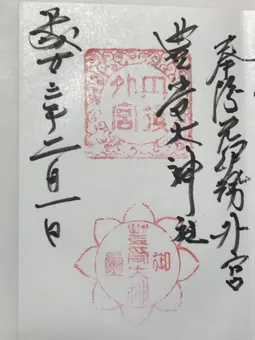 奉拝 元伊勢外宮
豊受大神社
三年二月一日
丹後
外宮
豊受大神
御